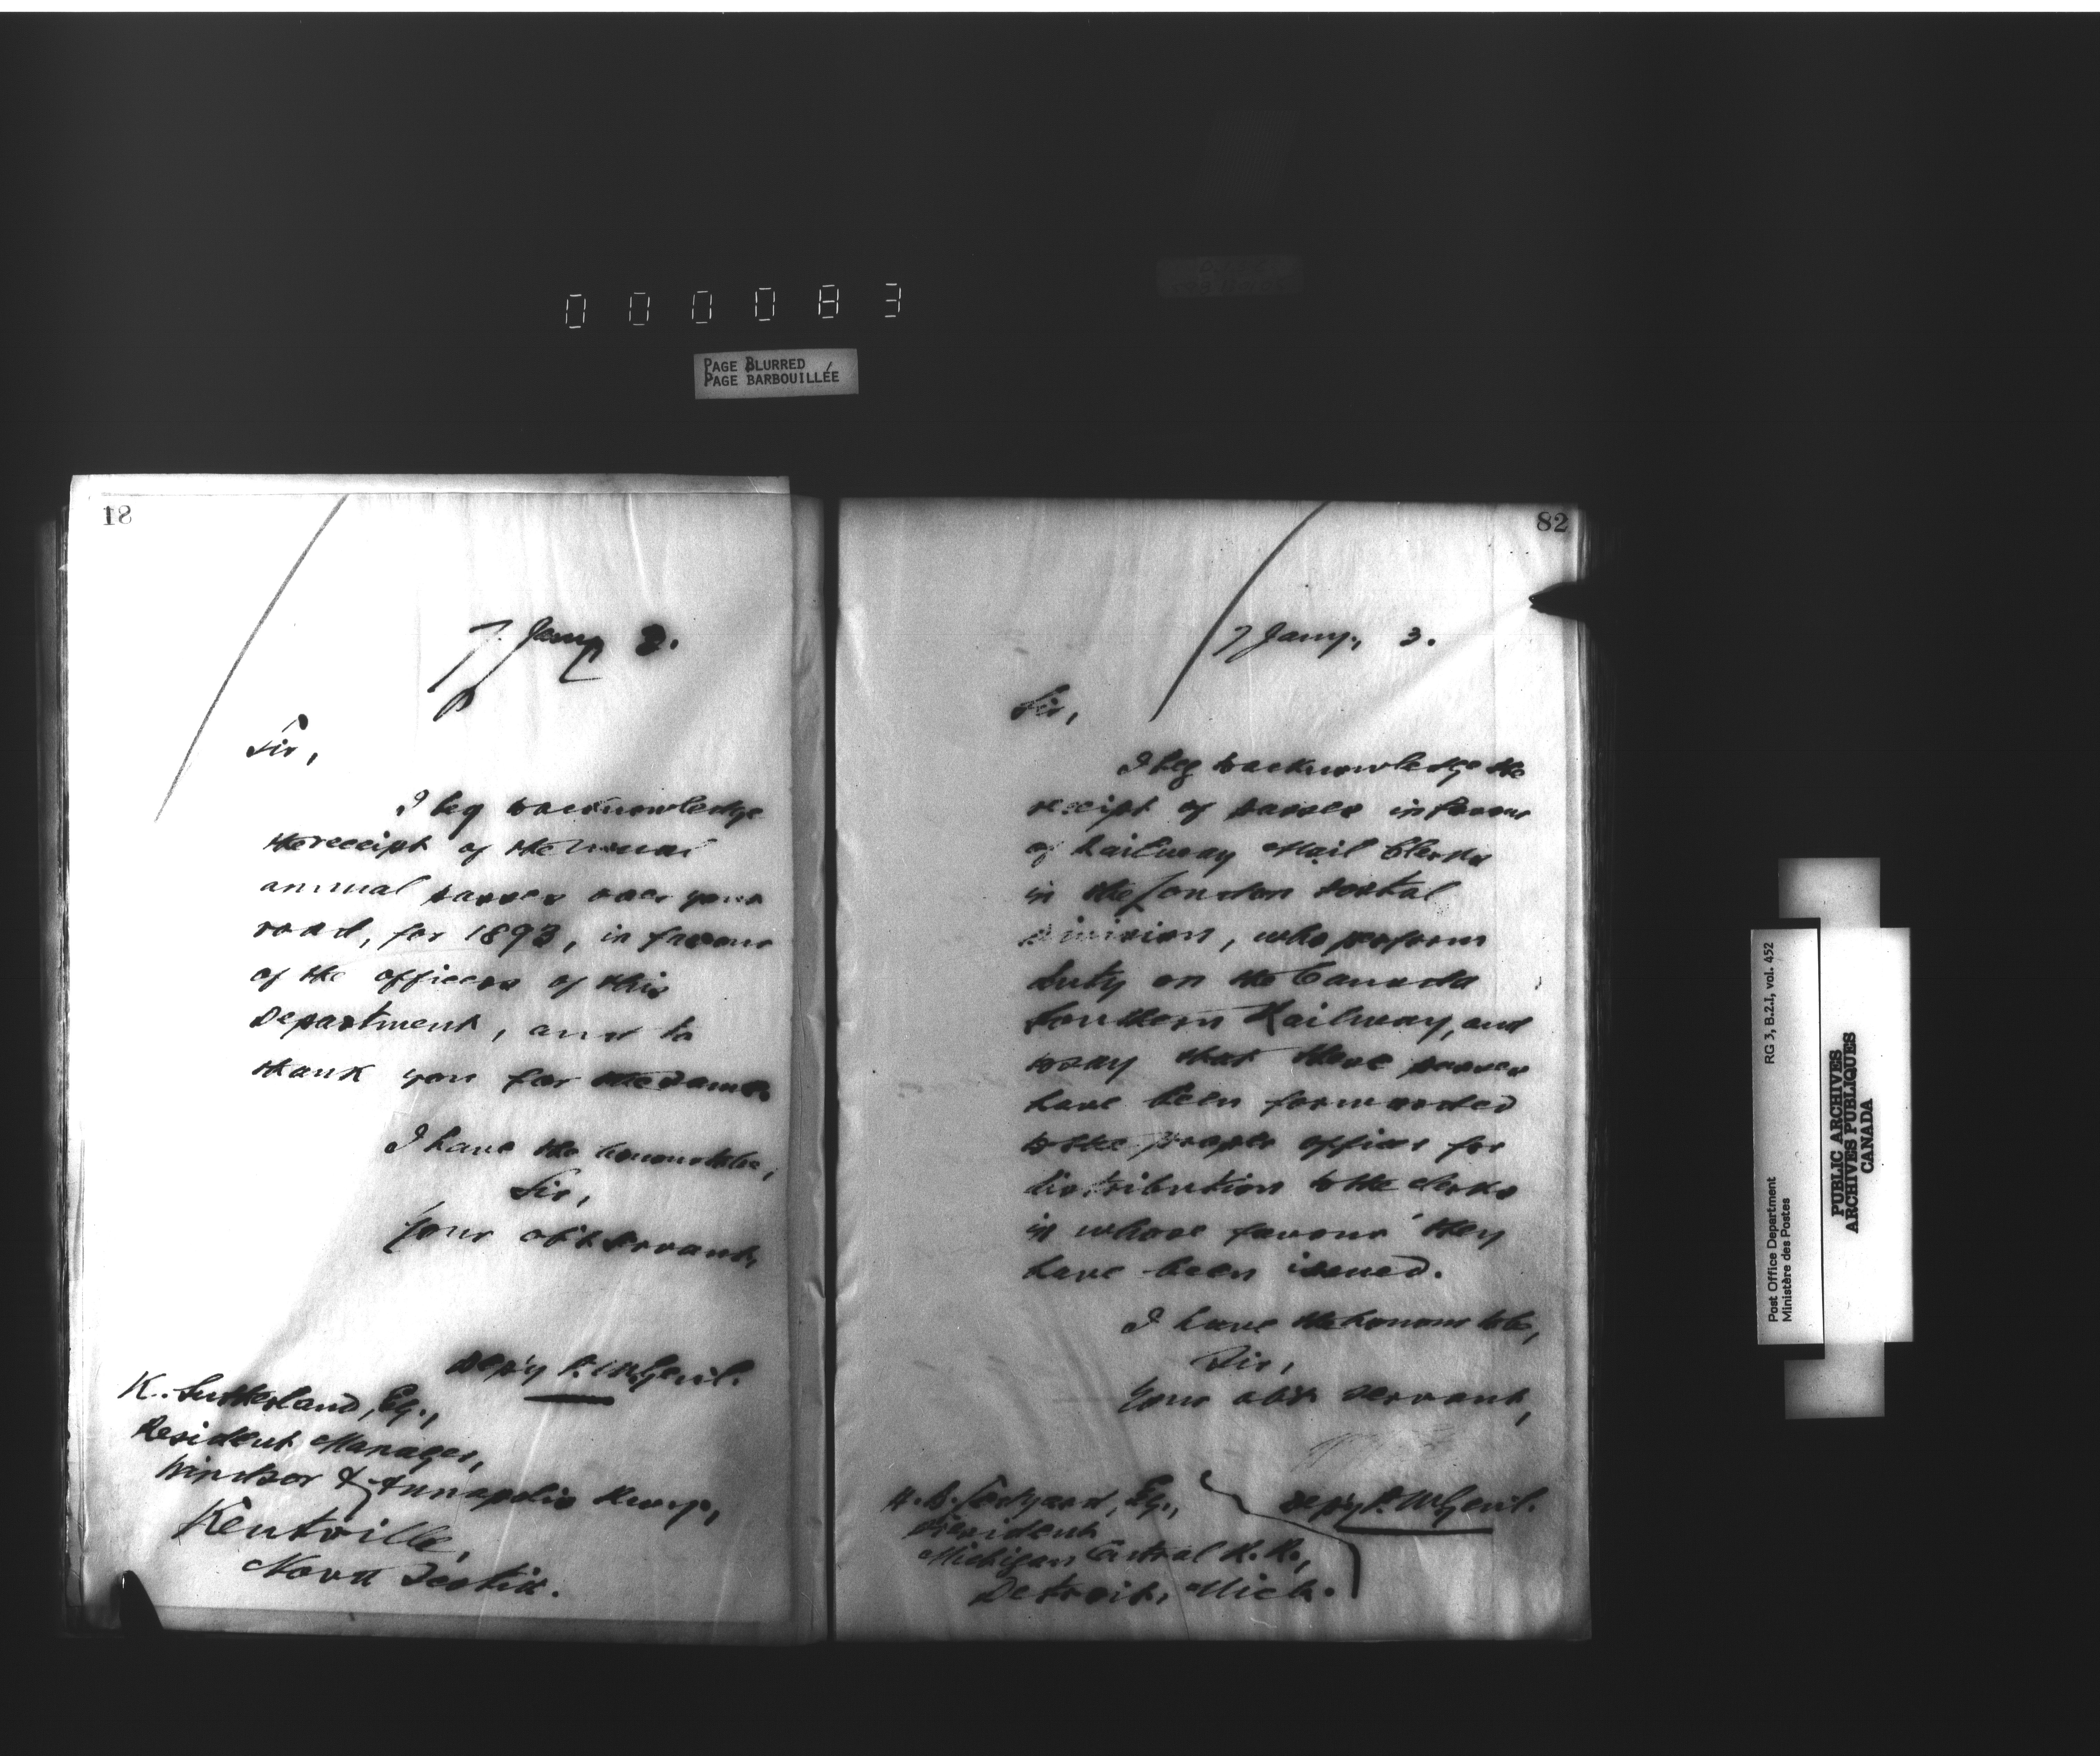 000083
PAGE BLURRED
PAGE BARBOUILLÉE
81
7 Jany 3.
Sir,
I beg to acknowledge
the receipt of the usual
annual passes over your
road, for 1893, in favour
of the officers of this
Department, and to
thank you for the same.
I have the honour to be,
Sir,
Your obt servant,
Dep'y P. M. Genl.
K. Sutherland, Esq.,
Resident Manager,
Windsor & Annapolis Rwy.,
Kentville,
Nova Scotia.
82
7 Jany., 3.
Sir,
I beg to acknowledge the
receipt of passes in favour
of Railway Mail Clerks
in the London Postal
Division, who perform
duty on the Canada
Southern Railway, and
to say that these passes
have been forwarded
to the proper officer for
distribution to the clerks
in whose favour they
have been issued.
I have the honour to be,
Sir,
Your obt servant,
Dep'y P. M. Genl.
H. B. Ledyard, Esq.,
President
Michigan Central R. R.,
Detroit, Mich.
Post Office Department
Ministère des Postes
RG 3, B.2.I, vol. 452
PUBLIC ARCHIVES
ARCHIVES PUBLIQUES
CANADA